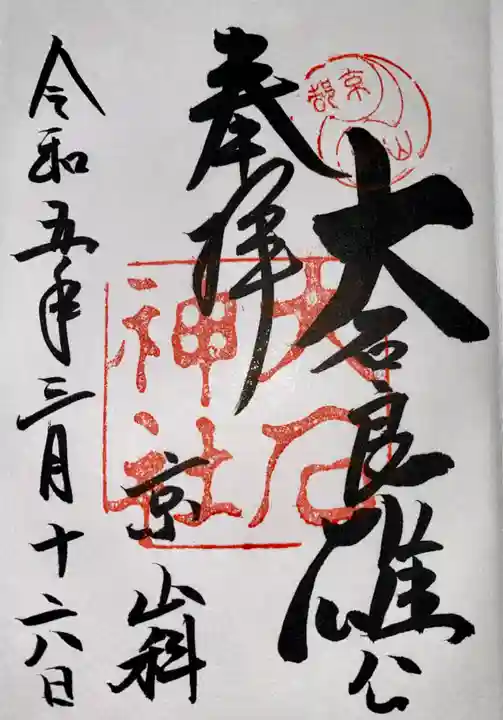 奉拝
大石良雄公
京山科
令和五年三月十六日
大石神社
京都
山